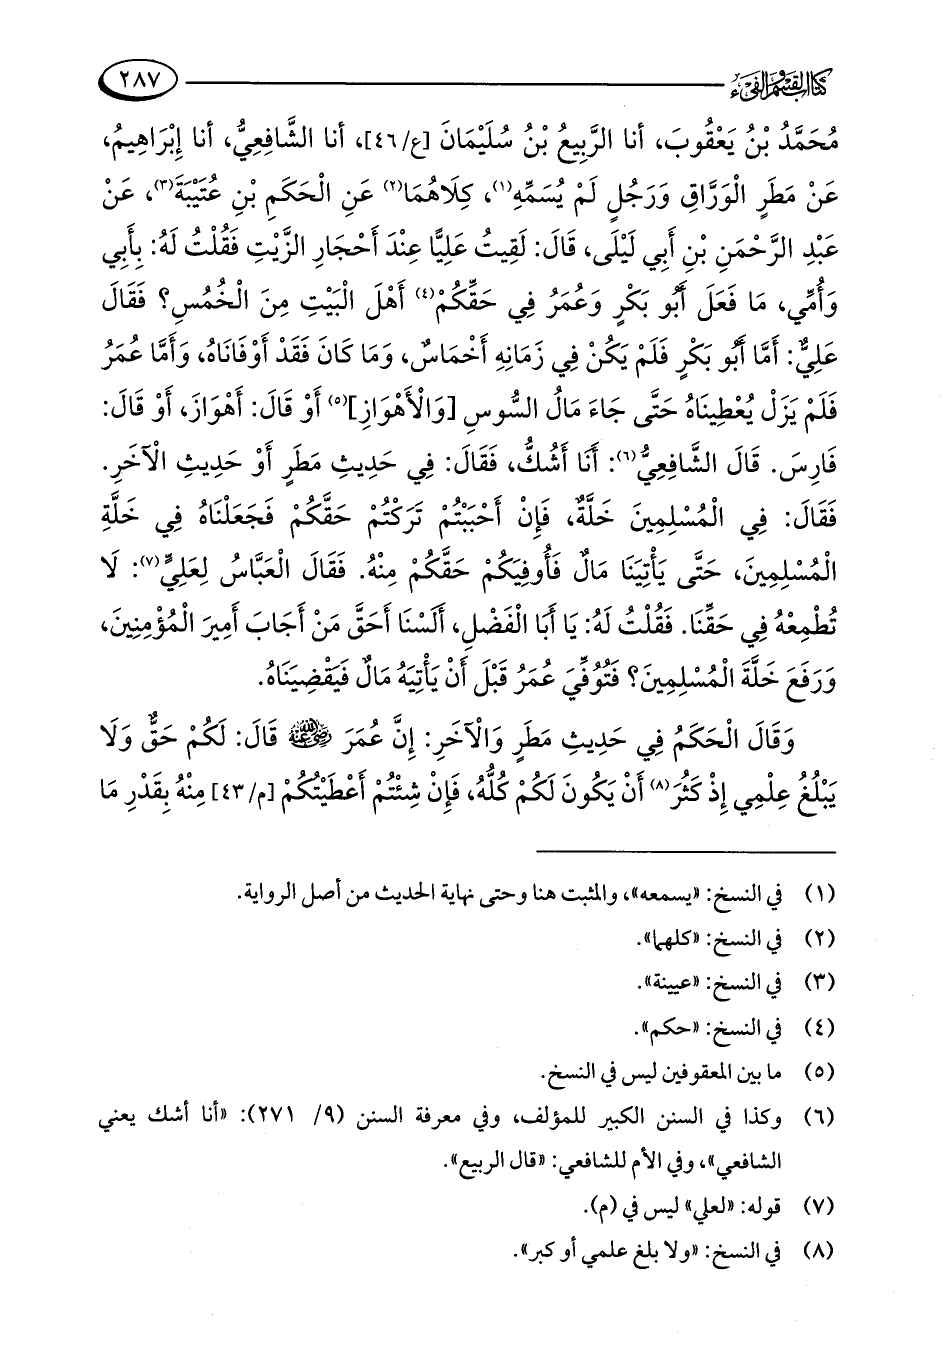 كتاب القسم والفيء ٢٨٧
مُحَمَّدُ بْنُ يَعْقُوبَ، أنا الرَّبِيعُ بْنُ سُلَيْمَانَ [ع/٤٦]، أنا الشَّافِعِيُّ، أنا إِبْرَاهِيمُ،
عَنْ مَطَرٍ الْوَرَّاقِ وَرَجُلٍ لَمْ يُسَمِّهِ(١)، كِلَاهُمَا(٢) عَنِ الْحَكَمِ بْنِ عُتَيْبَةَ(٣)، عَنْ
عَبْدِ الرَّحْمَنِ بْنِ أَبِي لَيْلَى، قَالَ: لَقِيتُ عَلِيًّا عِنْدَ أَحْجَارِ الزَّيْتِ فَقُلْتُ لَهُ: بِأَبِي
وَأُمِّي، مَا فَعَلَ أَبُو بَكْرٍ وَعُمَرُ فِي حَقِّكُمْ(٤) أَهْلَ الْبَيْتِ مِنَ الْخُمُسِ؟ فَقَالَ
عَلِيٌّ: أَمَّا أَبُو بَكْرٍ فَلَمْ يَكُنْ فِي زَمَانِهِ أَخْمَاسٌ، وَمَا كَانَ فَقَدْ أَوْفَانَاهُ، وَأَمَّا عُمَرُ
فَلَمْ يَزَلْ يُعْطِينَاهُ حَتَّى جَاءَ مَالُ السُّوسِ [وَالْأَهْوَازِ](٥) أَوْ قَالَ: أَهْوَازَ، أَوْ قَالَ:
فَارِسَ. قَالَ الشَّافِعِيُّ(٦): أَنَا أَشُكُّ، فَقَالَ: فِي حَدِيثِ مَطَرٍ أَوْ حَدِيثِ الْآخَرِ.
فَقَالَ: فِي الْمُسْلِمِينَ خَلَّةٌ، فَإِنْ أَحْبَبْتُمْ تَرَكْتُمْ حَقَّكُمْ فَجَعَلْنَاهُ فِي خَلَّةِ
الْمُسْلِمِينَ، حَتَّى يَأْتِيَنَا مَالٌ فَأُوفِيَكُمْ حَقَّكُمْ مِنْهُ. فَقَالَ الْعَبَّاسُ لِعَلِيٍّ(٧): لَا
تُطْمِعْهُ فِي حَقِّنَا. فَقُلْتُ لَهُ: يَا أَبَا الْفَضْلِ، أَلَسْنَا أَحَقَّ مَنْ أَجَابَ أَمِيرَ الْمُؤْمِنِينَ،
وَرَفَعَ خَلَّةَ الْمُسْلِمِينَ؟ فَتُوُفِّيَ عُمَرُ قَبْلَ أَنْ يَأْتِيَهُ مَالٌ فَيَقْضِيَنَاهُ.
وَقَالَ الْحَكَمُ فِي حَدِيثِ مَطَرٍ وَالْآخَرِ: إِنَّ عُمَرَ رضي الله عنه قَالَ: لَكُمْ حَقٌّ وَلَا
يَبْلُغُ عِلْمِي إِذْ كَثُرَ(٨) أَنْ يَكُونَ لَكُمْ كُلُّهُ، فَإِنْ شِئْتُمْ أَعْطَيْتُكُمْ [م/٤٣] مِنْهُ بِقَدْرِ مَا
(١) في النسخ: «يسمعه»، والمثبت هنا وحتى نهاية الحديث من أصل الرواية.
(٢) في النسخ: «كلهما».
(٣) في النسخ: «عيينة».
(٤) في النسخ: «حكم».
(٥) ما بين المعقوفين ليس في النسخ.
(٦) وكذا في السنن الكبير للمؤلف، وفي معرفة السنن (٩/ ٢٧١): «أنا أشك يعني
الشافعي»، وفي الأم للشافعي: «قال الربيع».
(٧) قوله: «لعلي» ليس في (م).
(٨) في النسخ: «ولا بلغ علمي أو كبر».